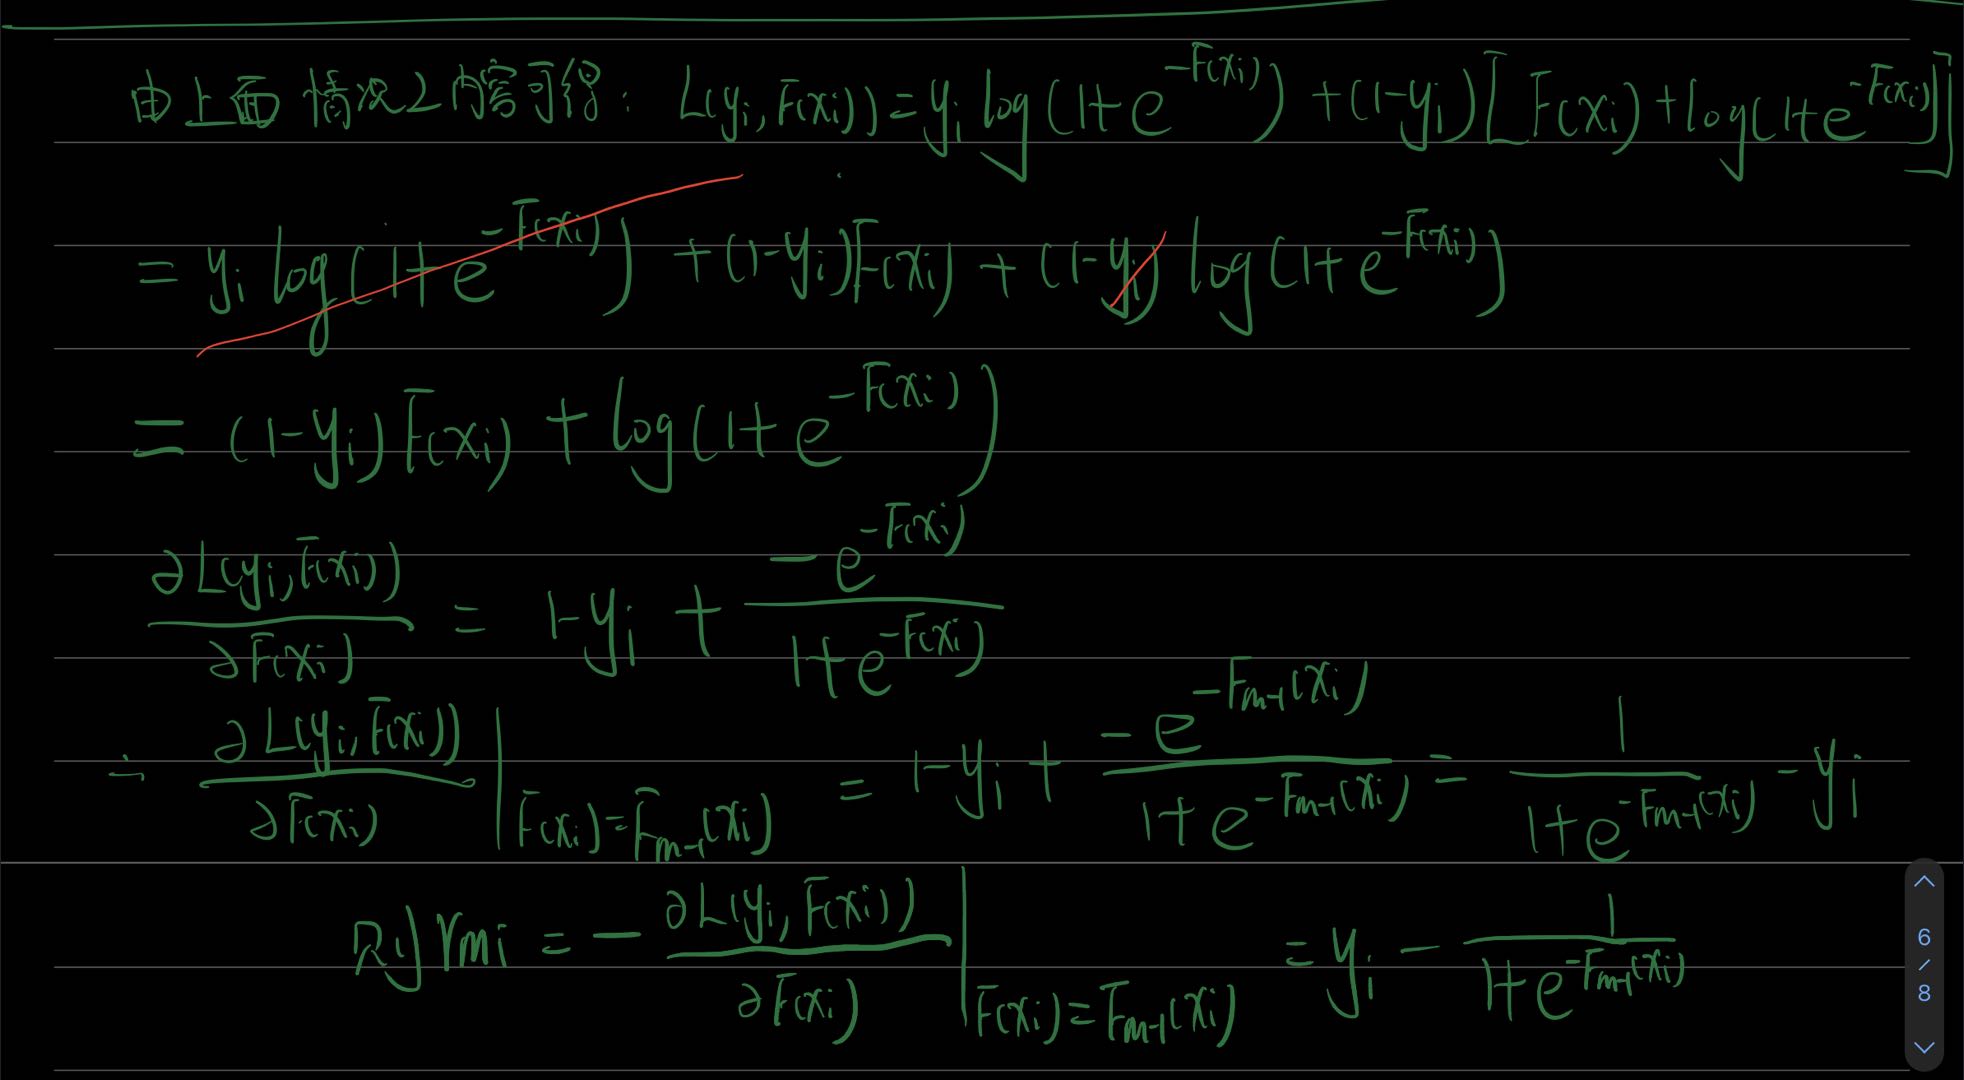 由上面情况2内容可得: L(yᵢ, F(xᵢ)) = yᵢ log(1+e^{-F(xᵢ)}) + (1-yᵢ)[F(xᵢ) + log(1+e^{-F(xᵢ)})]
= yᵢ log(1+e^{-F(xᵢ)}) + (1-yᵢ)F(xᵢ) + (1-yᵢ) log(1+e^{-F(xᵢ)})
= (1-yᵢ)F(xᵢ) + log(1+e^{-F(xᵢ)})
∂L(yᵢ, F(xᵢ)) / ∂F(xᵢ) = 1-yᵢ + -e^{-F(xᵢ)} / (1+e^{-F(xᵢ)})
∴ ∂L(yᵢ, F(xᵢ)) / ∂F(xᵢ) |_{F(xᵢ)=F_{m-1}(xᵢ)} = 1-yᵢ + -e^{-F_{m-1}(xᵢ)} / (1+e^{-F_{m-1}(xᵢ)}) = 1 / (1+e^{-F_{m-1}(xᵢ)}) - yᵢ
则 r_{mi} = - ∂L(yᵢ, F(xᵢ)) / ∂F(xᵢ) |_{F(xᵢ)=F_{m-1}(xᵢ)} = yᵢ - 1 / (1+e^{-F_{m-1}(xᵢ)})
6
/
8